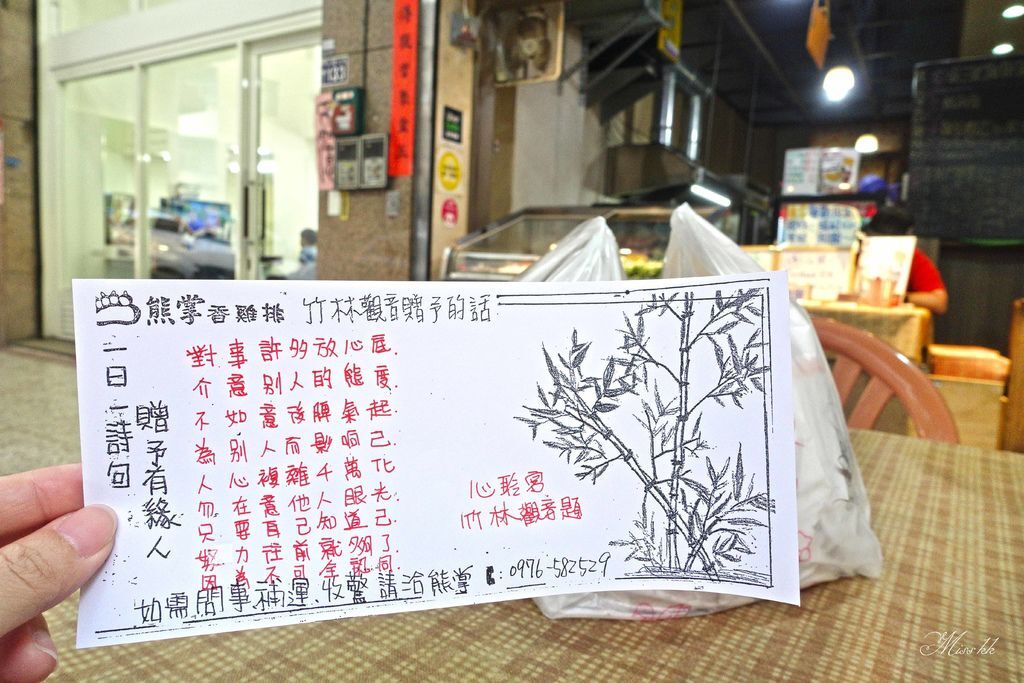 133
熊掌香雞排 竹林觀音贈予的話
一日一詩句
贈予有緣人
對事許多放心底.
介意別人的態度.
不如意後脾氣起.
為別人而影响己.
人心複雜千萬化
勿在意他人眼光.
只要自己知道己.
努力往前就夠了
因為不可全認同
心聆宮
竹林觀音題
如需問事補運.收驚請洽熊掌 0976-582529
Miss kk